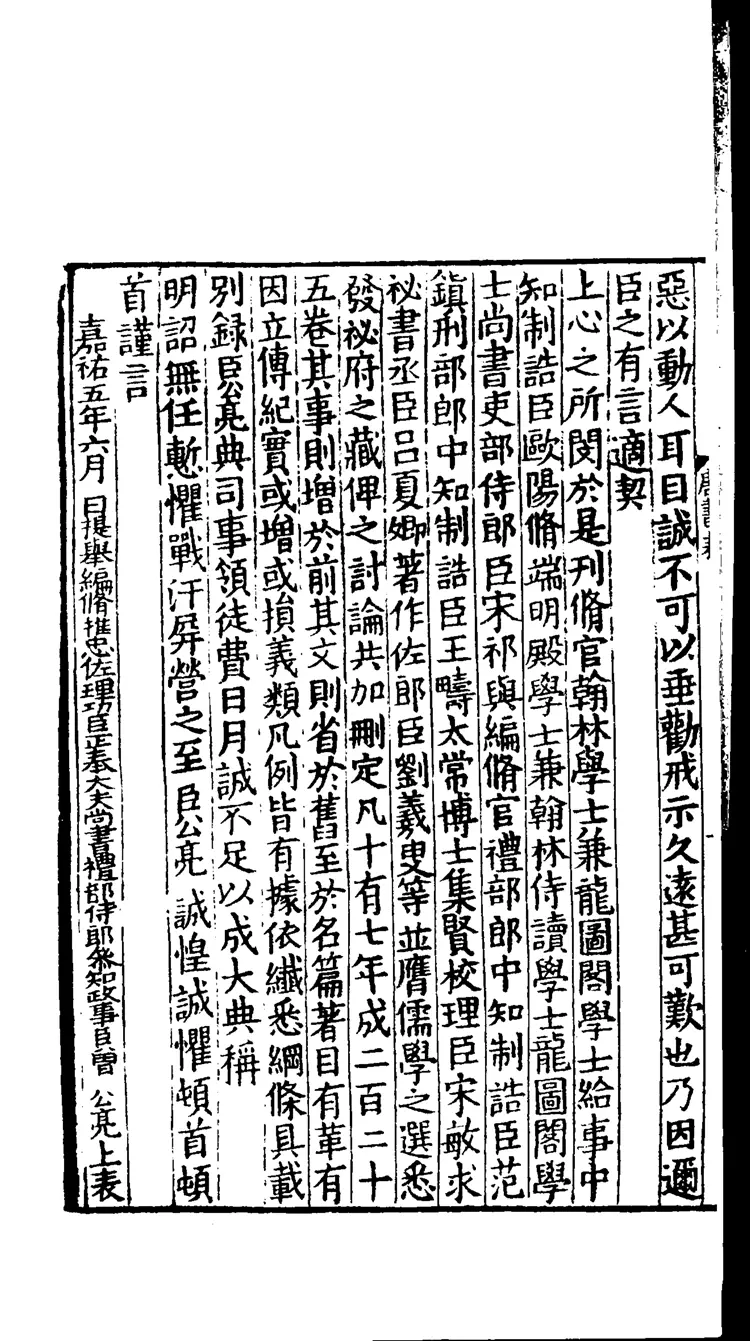 惡以動人耳目誠不可以垂勸戒示久遠甚可歎也乃因邇
臣之有言適契
上心之所閔於是刊脩官翰林學士兼龍圖閣學士給事中
知制誥臣歐陽脩端明殿學士兼翰林侍讀學士龍圖閣學
士尚書吏部侍郎臣宋祁與編脩官禮部郎中知制誥臣范
鎮刑部郎中知制誥臣王疇太常博士集賢校理臣宋敏求
祕書丞臣呂夏卿著作佐郎臣劉羲叟等並膺儒學之選悉
發祕府之藏俾之討論共加刪定凡十有七年成二百二十
五卷其事則增於前其文則省於舊至於名篇著目有革有
因立傳紀實或增或損義類凡例皆有據依纖悉綱條具載
別録臣公亮典司事領徒費日月誠不足以成大典稱
明詔無任慙懼戰汗屏營之至臣公亮誠惶誠懼頓首頓
首謹言
嘉祐五年六月 日提舉編脩推忠佐理功臣正奉大夫尚書禮部侍郎叅知政事臣曾 公亮上表